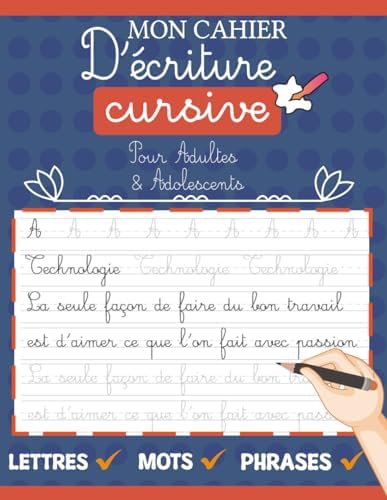 MON CAHIER
D'écriture
cursive
Pour Adultes
& Adolescents
A A A A A A A A A
Technologie Technologie Technologie
La seule façon de faire du bon travail
est d'aimer ce que l'on fait avec passion
La seule façon de faire du bon tra
est d'aimer ce que l'on fait avec pass
LETTRES MOTS PHRASES